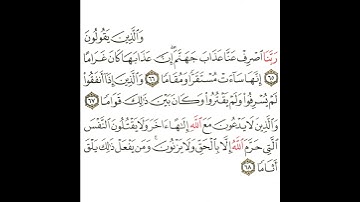 وَٱلَّذِينَ يَقُولُونَ
رَبَّنَا ٱصْرِفْ عَنَّا عَذَابَ جَهَنَّمَ ۖ إِنَّ عَذَابَهَا كَانَ غَرَامًا
٦٥ إِنَّهَا سَآءَتْ مُسْتَقَرًّا وَمُقَامًا ٦٦ وَٱلَّذِينَ إِذَآ أَنفَقُوا۟
لَمْ يُسْرِفُوا۟ وَلَمْ يَقْتُرُوا۟ وَكَانَ بَيْنَ ذَٰلِكَ قَوَامًا ٦٧
وَٱلَّذِينَ لَا يَدْعُونَ مَعَ ٱللَّهِ إِلَٰهًا ءَاخَرَ وَلَا يَقْتُلُونَ ٱلنَّفْسَ
ٱلَّتِى حَرَّمَ ٱللَّهُ إِلَّا بِٱلْحَقِّ وَلَا يَزْنُونَ ۚ وَمَن يَفْعَلْ ذَٰلِكَ يَلْقَ
أَثَامًا ٦٨